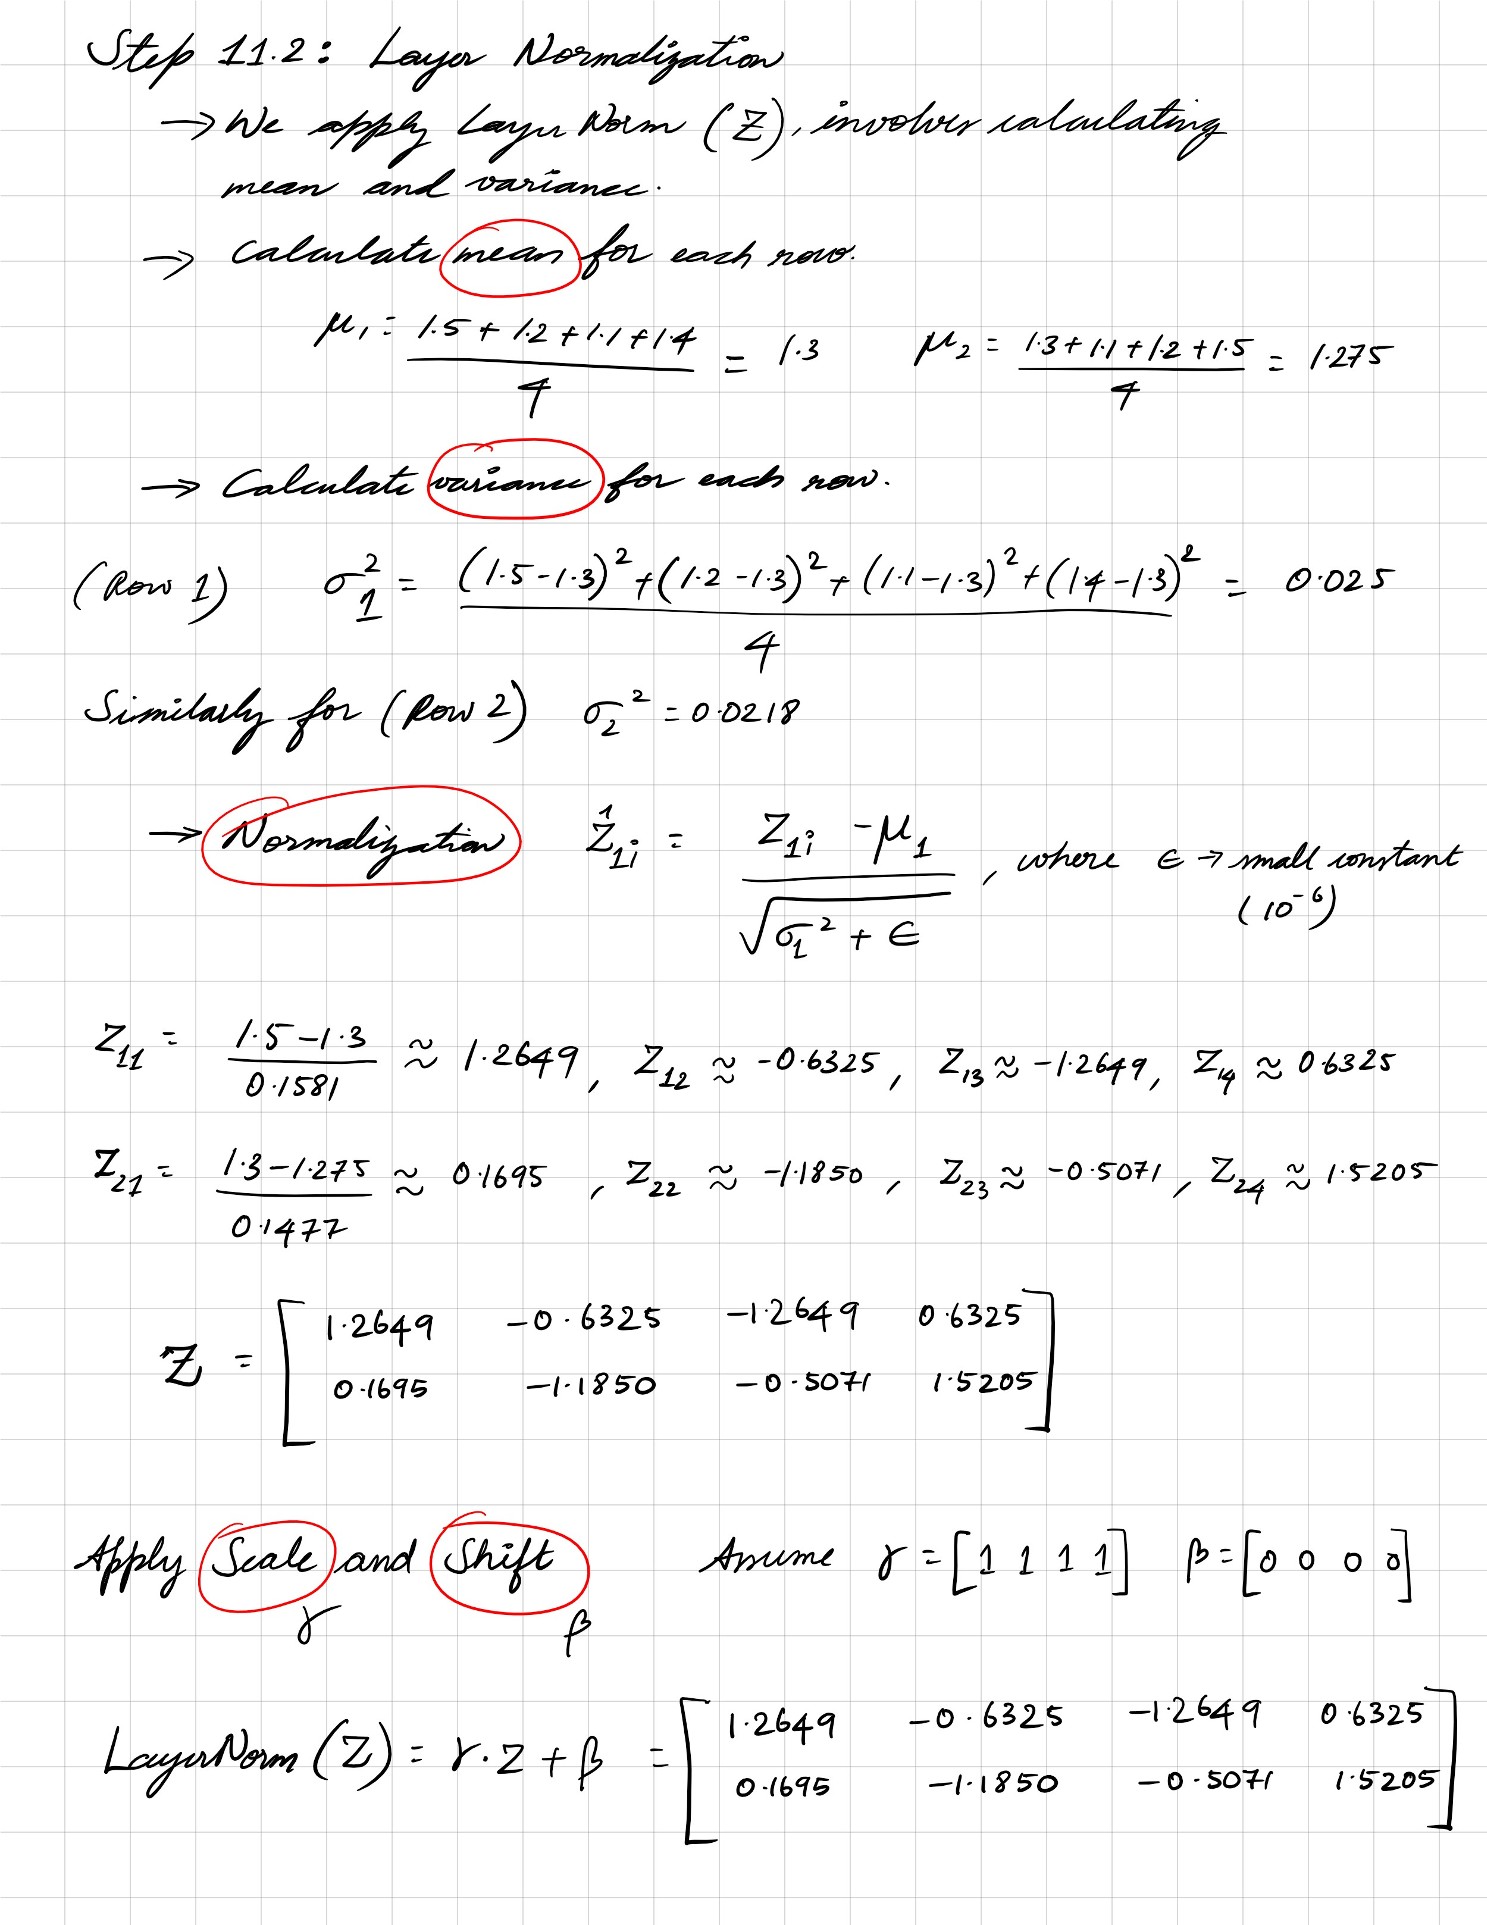 Step 11.2: Layer Normalization
→ We apply Layer Norm (Z), involves calculating
mean and variance.
→ Calculate mean for each row.
μ₁ = (1.5 + 1.2 + 1.1 + 1.4)/4 = 1.3 μ₂ = (1.3 + 1.1 + 1.2 + 1.5)/4 = 1.275
→ Calculate variance for each row.
(Row 1) σ₁² = ((1.5-1.3)² + (1.2-1.3)² + (1.1-1.3)² + (1.4-1.3)²)/4 = 0.025
Similarly for (Row 2) σ₂² = 0.0218
→ Normalization Ẑ₁ᵢ = (Z₁ᵢ - μ₁)/√(σ₁² + ϵ), where ϵ → small constant
(10⁻⁶)
Z₁₁ = (1.5-1.3)/0.1581 ≈ 1.2649, Z₁₂ ≈ -0.6325, Z₁₃ ≈ -1.2649, Z₁₄ ≈ 0.6325
Z₂₁ = (1.3-1.275)/0.1477 ≈ 0.1695, Z₂₂ ≈ -1.1850, Z₂₃ ≈ -0.5071, Z₂₄ ≈ 1.5205
Z = [1.2649 -0.6325 -1.2649 0.6325
0.1695 -1.1850 -0.5071 1.5205]
Apply Scale and Shift Assume γ = [1 1 1 1] β = [0 0 0 0]
γ β
LayerNorm (Z) = γ.Z + β = [1.2649 -0.6325 -1.2649 0.6325
0.1695 -1.1850 -0.5071 1.5205]